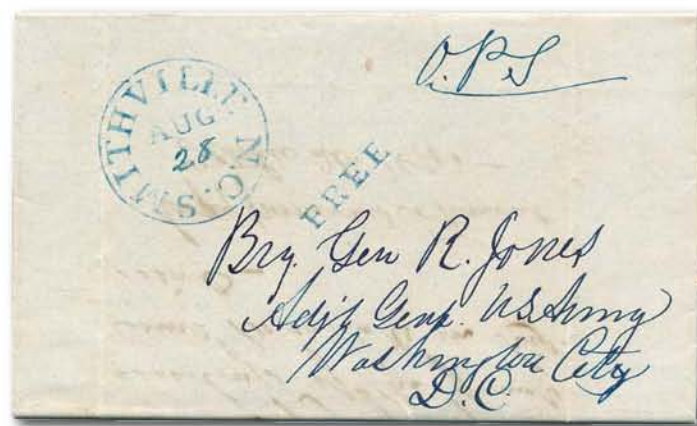 O.P.S
SMITHVILLE N.C.
AUG
28
FREE
Brg. Gen R. Jones
Adjt Genl. US Army
Washington City
D.C.